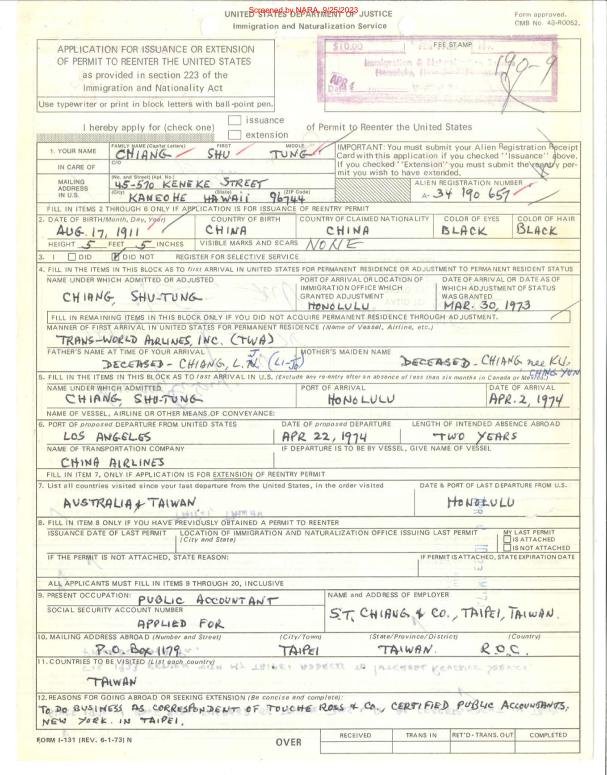 Screened by NARA, 9/25/2023
UNITED STATES DEPARTMENT OF JUSTICE
Immigration and Naturalization Service
Form approved.
OMB No. 43-R0052.
APPLICATION FOR ISSUANCE OR EXTENSION
OF PERMIT TO REENTER THE UNITED STATES
as provided in section 223 of the
Immigration and Nationality Act
Use typewriter or print in block letters with ball-point pen.
$10.00
FEE STAMP
I hereby apply for (check one)
issuance
extension
of Permit to Reenter the United States
1. YOUR NAME
FAMILY NAME (Capital Letters) FIRST MIDDLE
CHIANG SHU TUNG
IN CARE OF
C/O
MAILING ADDRESS IN U.S.
(No. and Street) (Apt. No.)
45-570 KENEKE STREET
(City) (State) (ZIP Code)
KANEOHE HAWAII 96744
IMPORTANT: You must submit your Alien Registration Receipt
Card with this application if you checked "Issuance" above.
If you checked "Extension" you must submit the very per-
mit you wish to have extended.
ALIEN REGISTRATION NUMBER
A- 34 190 657
FILL IN ITEMS 2 THROUGH 6 ONLY IF APPLICATION IS FOR ISSUANCE OF REENTRY PERMIT
2. DATE OF BIRTH (Month, Day, Year) COUNTRY OF BIRTH COUNTRY OF CLAIMED NATIONALITY COLOR OF EYES COLOR OF HAIR
AUG. 17, 1911 CHINA CHINA BLACK BLACK
HEIGHT 5 FEET 5 INCHES VISIBLE MARKS AND SCARS NONE
3. I DID DID NOT REGISTER FOR SELECTIVE SERVICE
4. FILL IN THE ITEMS IN THIS BLOCK AS TO first ARRIVAL IN UNITED STATES FOR PERMANENT RESIDENCE OR ADJUSTMENT TO PERMANENT RESIDENT STATUS
NAME UNDER WHICH ADMITTED OR ADJUSTED
CHIANG, SHU-TUNG.
PORT OF ARRIVAL OR LOCATION OF
IMMIGRATION OFFICE WHICH
GRANTED ADJUSTMENT
HONOLULU
DATE OF ARRIVAL OR DATE AS OF
WHICH ADJUSTMENT OF STATUS
WAS GRANTED
MAR. 30, 1973
FILL IN REMAINING ITEMS IN THIS BLOCK ONLY IF YOU DID NOT ACQUIRE PERMANENT RESIDENCE THROUGH ADJUSTMENT.
MANNER OF FIRST ARRIVAL IN UNITED STATES FOR PERMANENT RESIDENCE (Name of Vessel, Airline, etc.)
TRANS-WORLD AIRLINES, INC. (TWA)
FATHER'S NAME AT TIME OF YOUR ARRIVAL MOTHER'S MAIDEN NAME
DECEASED - CHIANG, L. DECEASED - CHIANG nee KU,
CHING YUN
5. FILL IN THE ITEMS IN THIS BLOCK AS TO last ARRIVAL IN U.S. (Exclude any re-entry after an absence of less than six months in Canada or Mexico.)
NAME UNDER WHICH ADMITTED PORT OF ARRIVAL DATE OF ARRIVAL
CHIANG, SHU-TUNG HONOLULU APR. 2, 1974
NAME OF VESSEL, AIRLINE OR OTHER MEANS OF CONVEYANCE:
6. PORT OF proposed DEPARTURE FROM UNITED STATES DATE OF proposed DEPARTURE LENGTH OF INTENDED ABSENCE ABROAD
LOS ANGELES APR 22, 1974 TWO YEARS
NAME OF TRANSPORTATION COMPANY IF DEPARTURE IS TO BE BY VESSEL, GIVE NAME OF VESSEL
CHINA AIRLINES
FILL IN ITEM 7, ONLY IF APPLICATION IS FOR EXTENSION OF REENTRY PERMIT
7. List all countries visited since your last departure from the United States, in the order visited DATE & PORT OF LAST DEPARTURE FROM U.S.
AUSTRALIA & TAIWAN HONOLULU
8. FILL IN ITEM 8 ONLY IF YOU HAVE PREVIOUSLY OBTAINED A PERMIT TO REENTER
ISSUANCE DATE OF LAST PERMIT LOCATION OF IMMIGRATION AND NATURALIZATION OFFICE ISSUING LAST PERMIT
(City and State)
MY LAST PERMIT
IS ATTACHED
IS NOT ATTACHED
IF THE PERMIT IS NOT ATTACHED, STATE REASON: IF PERMIT IS ATTACHED, STATE EXPIRATION DATE
ALL APPLICANTS MUST FILL IN ITEMS 9 THROUGH 20, INCLUSIVE
9. PRESENT OCCUPATION: PUBLIC ACCOUNTANT
NAME AND ADDRESS OF EMPLOYER
SOCIAL SECURITY ACCOUNT NUMBER
APPLIED FOR
S.T. CHIANG & CO., TAIPEI, TAIWAN.
10. MAILING ADDRESS ABROAD (Number and Street) (City/Town) (State/Province/District) (Country)
P.O. Box 1179 TAIPEI TAIWAN. R.O.C.
11. COUNTRIES TO BE VISITED (List each country)
TAIWAN
12. REASONS FOR GOING ABROAD OR SEEKING EXTENSION (Be concise and complete):
TO DO BUSINESS AS CORRESPONDENT OF TOUCHE ROSS & CO., CERTIFIED PUBLIC ACCOUNTANTS,
NEW YORK. IN TAIPEI.
RECEIVED TRANS IN RET'D-TRANS. OUT COMPLETED
FORM I-131 (REV. 6-1-73) N
OVER